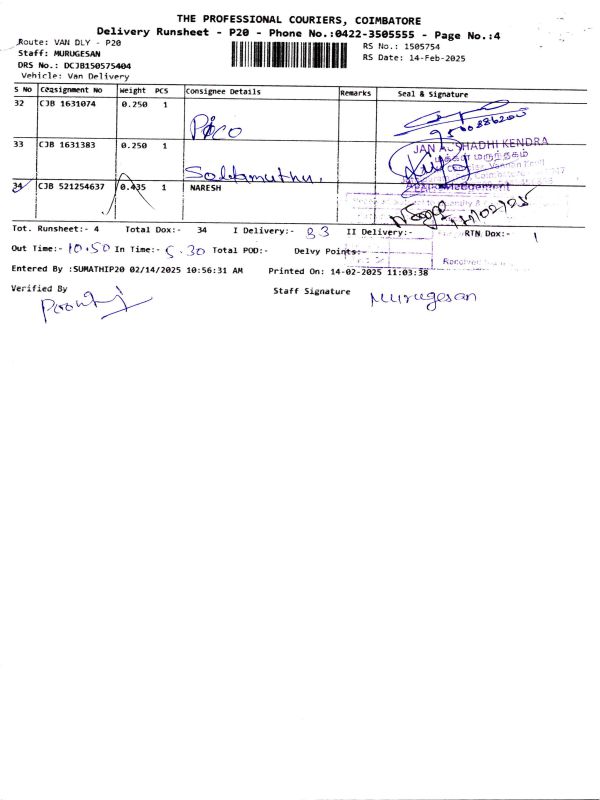 THE PROFESSIONAL COURIERS, COIMBATORE
Delivery Runsheet - P20 - Phone No.:0422-3505555 - Page No.:4
Route: VAN DLY - P20
RS No.: 1505754
Staff: MURUGESAN
RS Date: 14-Feb-2025
DRS No.: DCJB150575404
Vehicle: Van Delivery
S No Consignment No Weight PCS Consignee Details Remarks Seal & Signature
32 CJB 1631074 0.250 1
Pico
33 CJB 1631383 0.250 1
JAN AUSHADHI KENDRA
மக்கள் மருந்தகம்
34 CJB 521254637 0.435 1 NARESH
Tot. Runsheet:- 4 Total Dox:- 34 I Delivery:- 33 II Delivery:- RTN Dox:- 1
Out Time:- 10.50 In Time:- 5.30 Total POD:- Delvy Points:-
Entered By :SUMATHIP20 02/14/2025 10:56:31 AM Printed On: 14-02-2025 11:03:38
Verified By Staff Signature Murugesan